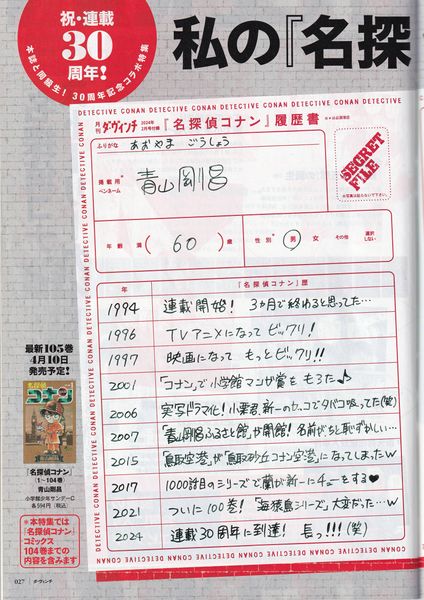 祝・連載
30
周年!
本誌と同誕生! 30周年記念コラボ特集
私の『名探
DETECTIVE CONAN DETECTIVE CONAN DETECTIVE CONAN DETECTIVE CONAN
月刊 ダ・ヴィンチ 2024年2月号付録 『名探偵コナン』履歴書
ふりがな あおやま ごうしょう
掲載用*ペンネーム
青山剛昌
SECRET
FILE
年齢 満 ( 60 ) 歳
性別* 男 女 その他 選択しない
年 『名探偵コナン』歴
1994 連載開始! 3か月で終わると思ってた…
1996 TVアニメになってビックリ!
1997 映画になって もっとビックリ!!
2001 「コナン」で小学館マンガ賞を もろた♪
2006 実写ドラマ化! 小栗君、新一のカッコでタバコ吸ってた(笑)
2007 「青山剛昌ふるさと館」が開館! 名前がちと恥ずかしい…
2015 「鳥取空港」が「鳥取砂丘コナン空港」になってしまったw
2017 1000話目のシリーズで蘭が新一にチューをする♥
2021 ついに100巻! 「海猿島シリーズ」大変だった…w
2024 連載30周年に到達! 長っ!!!(笑)
最新105巻
4月10日
発売予定!
名探偵
コナン
『名探偵コナン』
(1〜104巻)
青山剛昌
小学館少年サンデーC
各594円(税込)
*本特集では
『名探偵コナン』
コミックス
104巻までの
内容を含みます
027 ダ・ヴィンチ